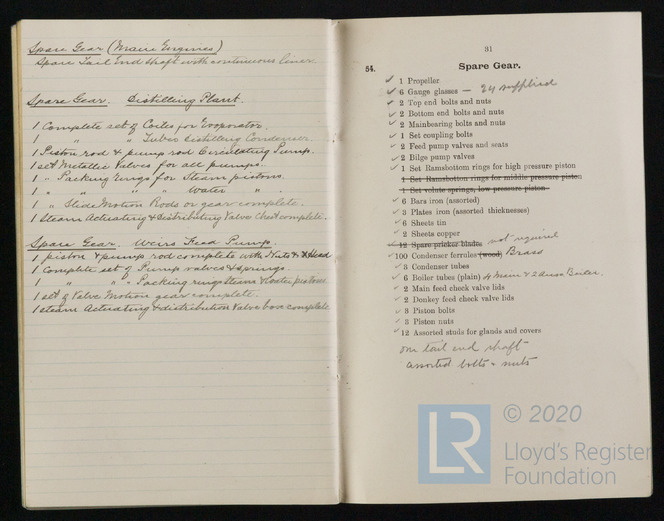 Spare Gear (Main Engines)
Spare Tail End Shaft with continuous liner
Spare Gear. Distilling Plant.
1 Complete set of Coils for Evaporator.
1 " " " Tubes Distilling Condenser
1 Piston rod & pump rod Circulating Pump.
1 set Metallic Valves for all pumps.
1 " Packing rings for Steam pistons.
1 " " " " Water " .
1 " Slide Motion Rods or gear complete.
1 Steam Actuating & Distributing Valve Chest complete.
Spare Gear. Weirs Feed Pump.
1 piston & pump rod complete with Nuts & Head
1 Complete set of Pump valves & springs.
1 " " " Packing rings Steam & water pistons
1 set of Valve Motion gear complete.
1 steam Actuating & distribution Valve box complete
31
54. Spare Gear.
✓ 1 Propeller
✓ 6 Gauge glasses — 24 supplied
✓ 2 Top end bolts and nuts
✓ 2 Bottom end bolts and nuts
✓ 2 Mainbearing bolts and nuts
✓ 1 Set coupling bolts
✓ 2 Feed pump valves and seats
✓ 2 Bilge pump valves
✓ 1 Set Ramsbottom rings for high pressure piston
1 Set Ramsbottom rings for middle pressure piston
1 Set volute springs, low pressure piston
✓ 6 Bars iron (assorted)
✓ 3 Plates iron (assorted thicknesses)
✓ 6 Sheets tin
✓ 2 Sheets copper
12 Spare pricker blades not required
✓ 100 Condenser ferrules (wood) Brass
✓ 8 Condenser tubes
✓ 6 Boiler tubes (plain) 4 Main & 2 Aux Boiler.
✓ 2 Main feed check valve lids
✓ 2 Donkey feed check valve lids
✓ 3 Piston bolts
✓ 3 Piston nuts
✓ 12 Assorted studs for glands and covers
one tail end shaft
assorted bolts & nuts
LR © 2020
Lloyd's Register
Foundation